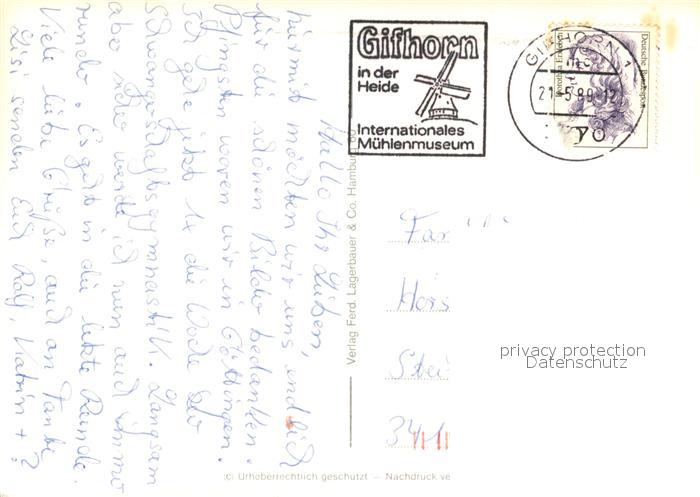 Hallo Ihr Lieben,
hiermit möchten wir uns endlich
für die schönen Bilder bedanken.
Pfingsten waren wir in Göttingen.
Ich gehe jetzt 1x die Woche zur
Schwangerschaftsgymnastik. Langsam
aber sicher werde ich nun auch immer
runder. Es geht in die letzte Runde.
Viele liebe Grüße, auch an Tante
Lisi senden Euch Rolf, Katrin + ?
Gifhorn
in der
Heide
Internationales
Mühlenmuseum
GIFHORN 1
21.-5.89.-12
Deutsche Bundespost
70
Verlag Ferd. Lagerbauer & Co. Hamburg
Fam
Hors
Stei
34
privacy protection
Datenschutz
(C) Urheberrechtlich geschützt – Nachdruck ve